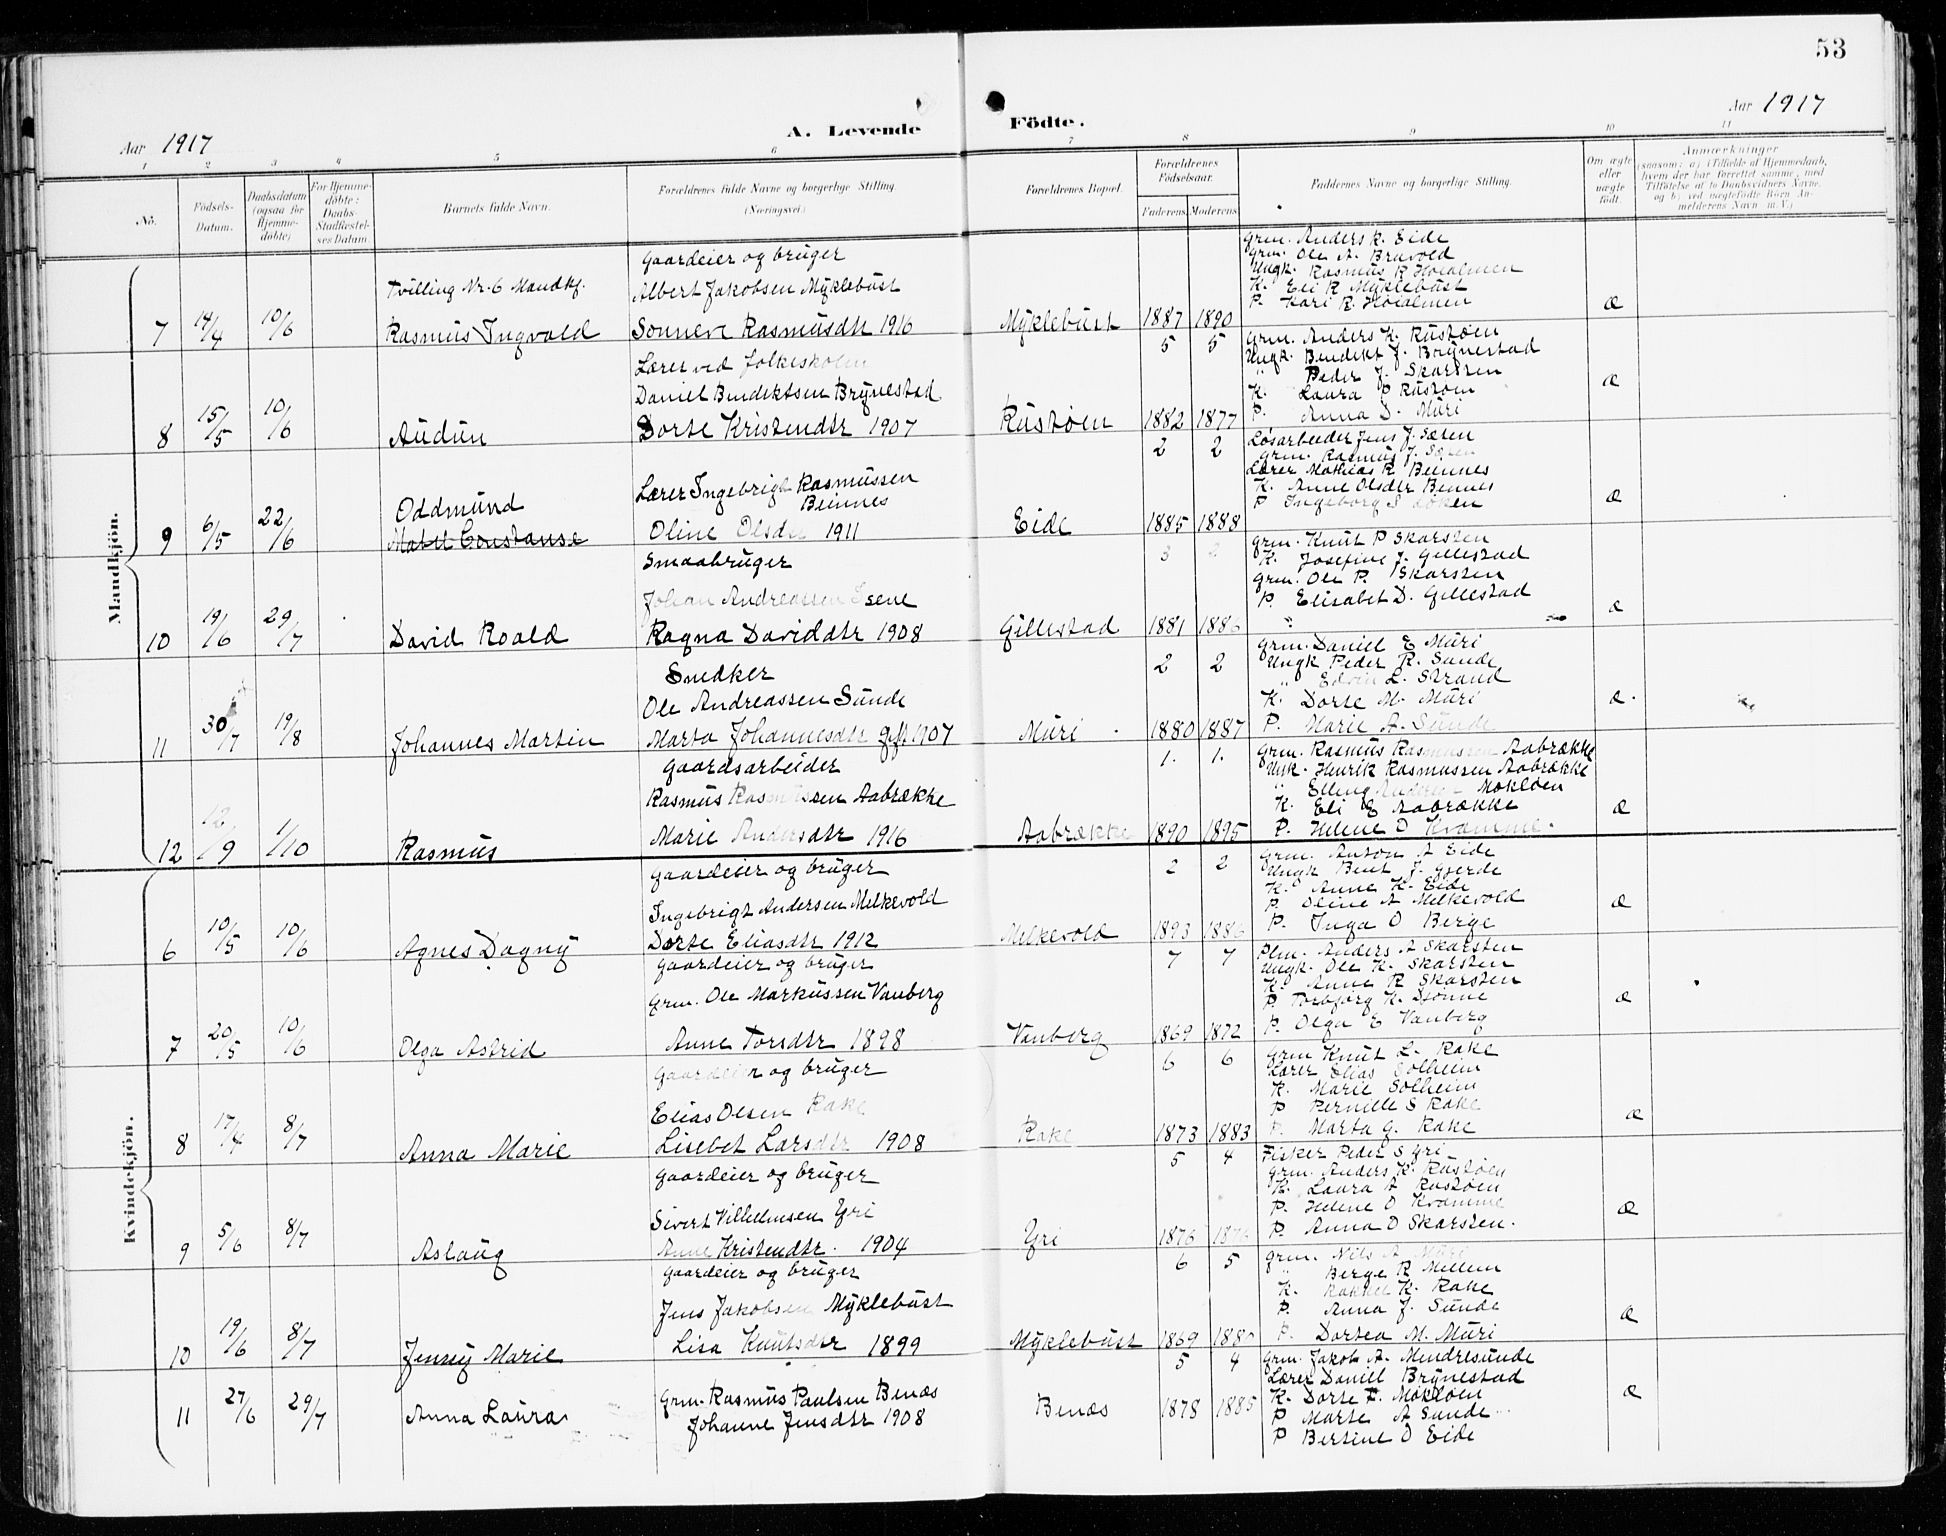 53
Aar 1917
A. Levende Födte.
Aar 1917
1 2 3 4 5 6 7 8 9 10 11
No.
Födsels-Datum.
Daabsdatum (ogsaa for Hjemmedöbte)
For Hjemmedöbte: Daabs-Stadfæstelses Datum
Barnets fulde Navn.
Forældrenes fulde Navne og borgerlige Stilling. (Næringsvei.)
Forældrenes Bopæl.
Forældrenes Födselsaar.
Faderens Moderens
Faddernes Navne og borgerlige Stilling.
Om ægte eller uægte födt.
Anmærkninger (saasom: a) i Tilfælde af Hjemmedaab, hvem der har forrettet samme, med Tilföielse af to Daabsvidners Navne, og b) ved uægtefödte Börn Anmelderens Navn m. V.)
Mandkjön.
7 14/4 10/6
Tvilling Nr. 6 Mandkj.
Rasmus Ingvald
Gaardeier og bruger
Albert Jakobsen Myklebust
Sonneve Rasmusdtr 1916
Myklebust 1887 1890
Grm. Anders K. Eide
Grm. Ole A. Bruvold
Ungk. Rasmus R Hoialmen
K. Eli R Myklebust
P. Kari R. Hoialmen
Æ
8 15/5 10/6
Audun
Lærer ved folkeskolen
Daniel Bendiktsen Brynestad
Dorte Kristendtr 1907
Rustøen 5 5 1882 1877
Grm. Anders K. Rustøen
Ungk. Bendikt J. Brynestad
" Peder J. Skarsten
K. Laura P Rustøen
P. Anna D. Muri
Æ
9 6/5 22/6
Oddmund
Matil Constanse
Lærer Ingebrigt Rasmussen Beinnes
Oline Olsdtr 1911
Eide 2 2 1885 1888
Løsarbeider Jens J. Sæten
Grm. Rasmus J.
Lærer Mathias R Beinnes
K. Anne Olsdtr Bennes
P Ingeborg S Løken
Æ
10 19/6 29/7
David Roald
Smaabruger
Johan Andreassen Isene
Ragna Daviddtr 1908
Gillestad 3 2 1881 1886
Grm. Knut P Skarsten
K. Josefine J. Gillestad
Grm. Ole P. Skarsten
P. Elisabet D. Gillestad
"
Æ
11 30/7 19/8
Johannes Martin
Snedker
Ole Andreassen Sunde
Marta Johannesdtr gift 1907
Muri 2 2 1880 1887
Grm. Daniel E Muri
Ungk Peder R. Sunde
" Edvin L. Strand
K. Dorte M. Muri
P. Marie A. Sunde
Æ
12 12/9 1/10
Rasmus
Gaardsarbeider
Rasmus Rasmussen Aabrække
Marie Andersdtr 1916
Aabrække 1. 1. 1890 1895
Grm. Rasmus Rasmussen Aabrække
Ungk. Henrik Rasmussen Aabrække
" Elling Anders - Mokløen
K. Eli E Aabrække
P. Helene O Kvamme.
Æ
Kvindekjön.
6 10/5 10/6
Agnes Dagny
Gaardeier og bruger
Ingebrigt Andersen Melkevold
Dorte Eliasdtr 1912
Melkevold 2 2 1893 1886
Grm. Anton A Eide
Ungk Bent J. Gjerde
K. Anne K. Eide
P. Oline A Melkevold
P. Inga O Berge
Æ
7 20/5 10/6
Olga Astrid
Gaardeier og bruger
Grm. Ole Markussen Vanberg
Anne Torsdtr 1898
Vanberg 7 7 1869 1872
Plm. Anders A Skarsten
Ungk. Ole K. Skarsten
K. Anne R Skarsten
P Torbjørg K. Djønne
P. Olga E Vanberg
Æ
8 17/4 8/7
Anna Marie
Gaardeier og bruger
Elias Olsen Rake
Lisebet Larsdtr 1908
Rake 6 6 1873 1883
Grm Knut L. Rake
Lærer Elias Solheim
K. Marie Solheim
P Pernille S Rake
P. Marta G. Rake
Æ
9 5/6 8/7
Aslaug
Gaardeier og bruger
Sivert Villelmsen Yri
Anne Kristendtr. 1904
Yri 5 4 1876 1876
Fisker Peder S Yri
Grm. Anders K. Rustøen
K. Laura A Rustøen
P. Helene O Kvamme
P. Anna D Skarsten.
Æ
10 19/6 8/7
Jenny Marie
Gaardeier og bruger
Jens Jakobsen Myklebust
Lisa Knutsdtr 1899
Myklebust 6 5 1869 1880
Grm. Nils A Muri
" Berge R Mellem
K. Rakkel K. Rake
P. Anna J. Sunde
P. Dortea M. Muri
Æ
11 27/6 29/7
Anna Laura
Grm. Rasmus Paulsen Benæs
Johanne Jensdtr 1908
Benæs 5 4 1878 1885
Grm. Jakob A. Mindresunde
Lærer Daniel Brynestad
K. Dorte E. Mokløen
P Marte A Sunde
P Bertine O Eide
Æ